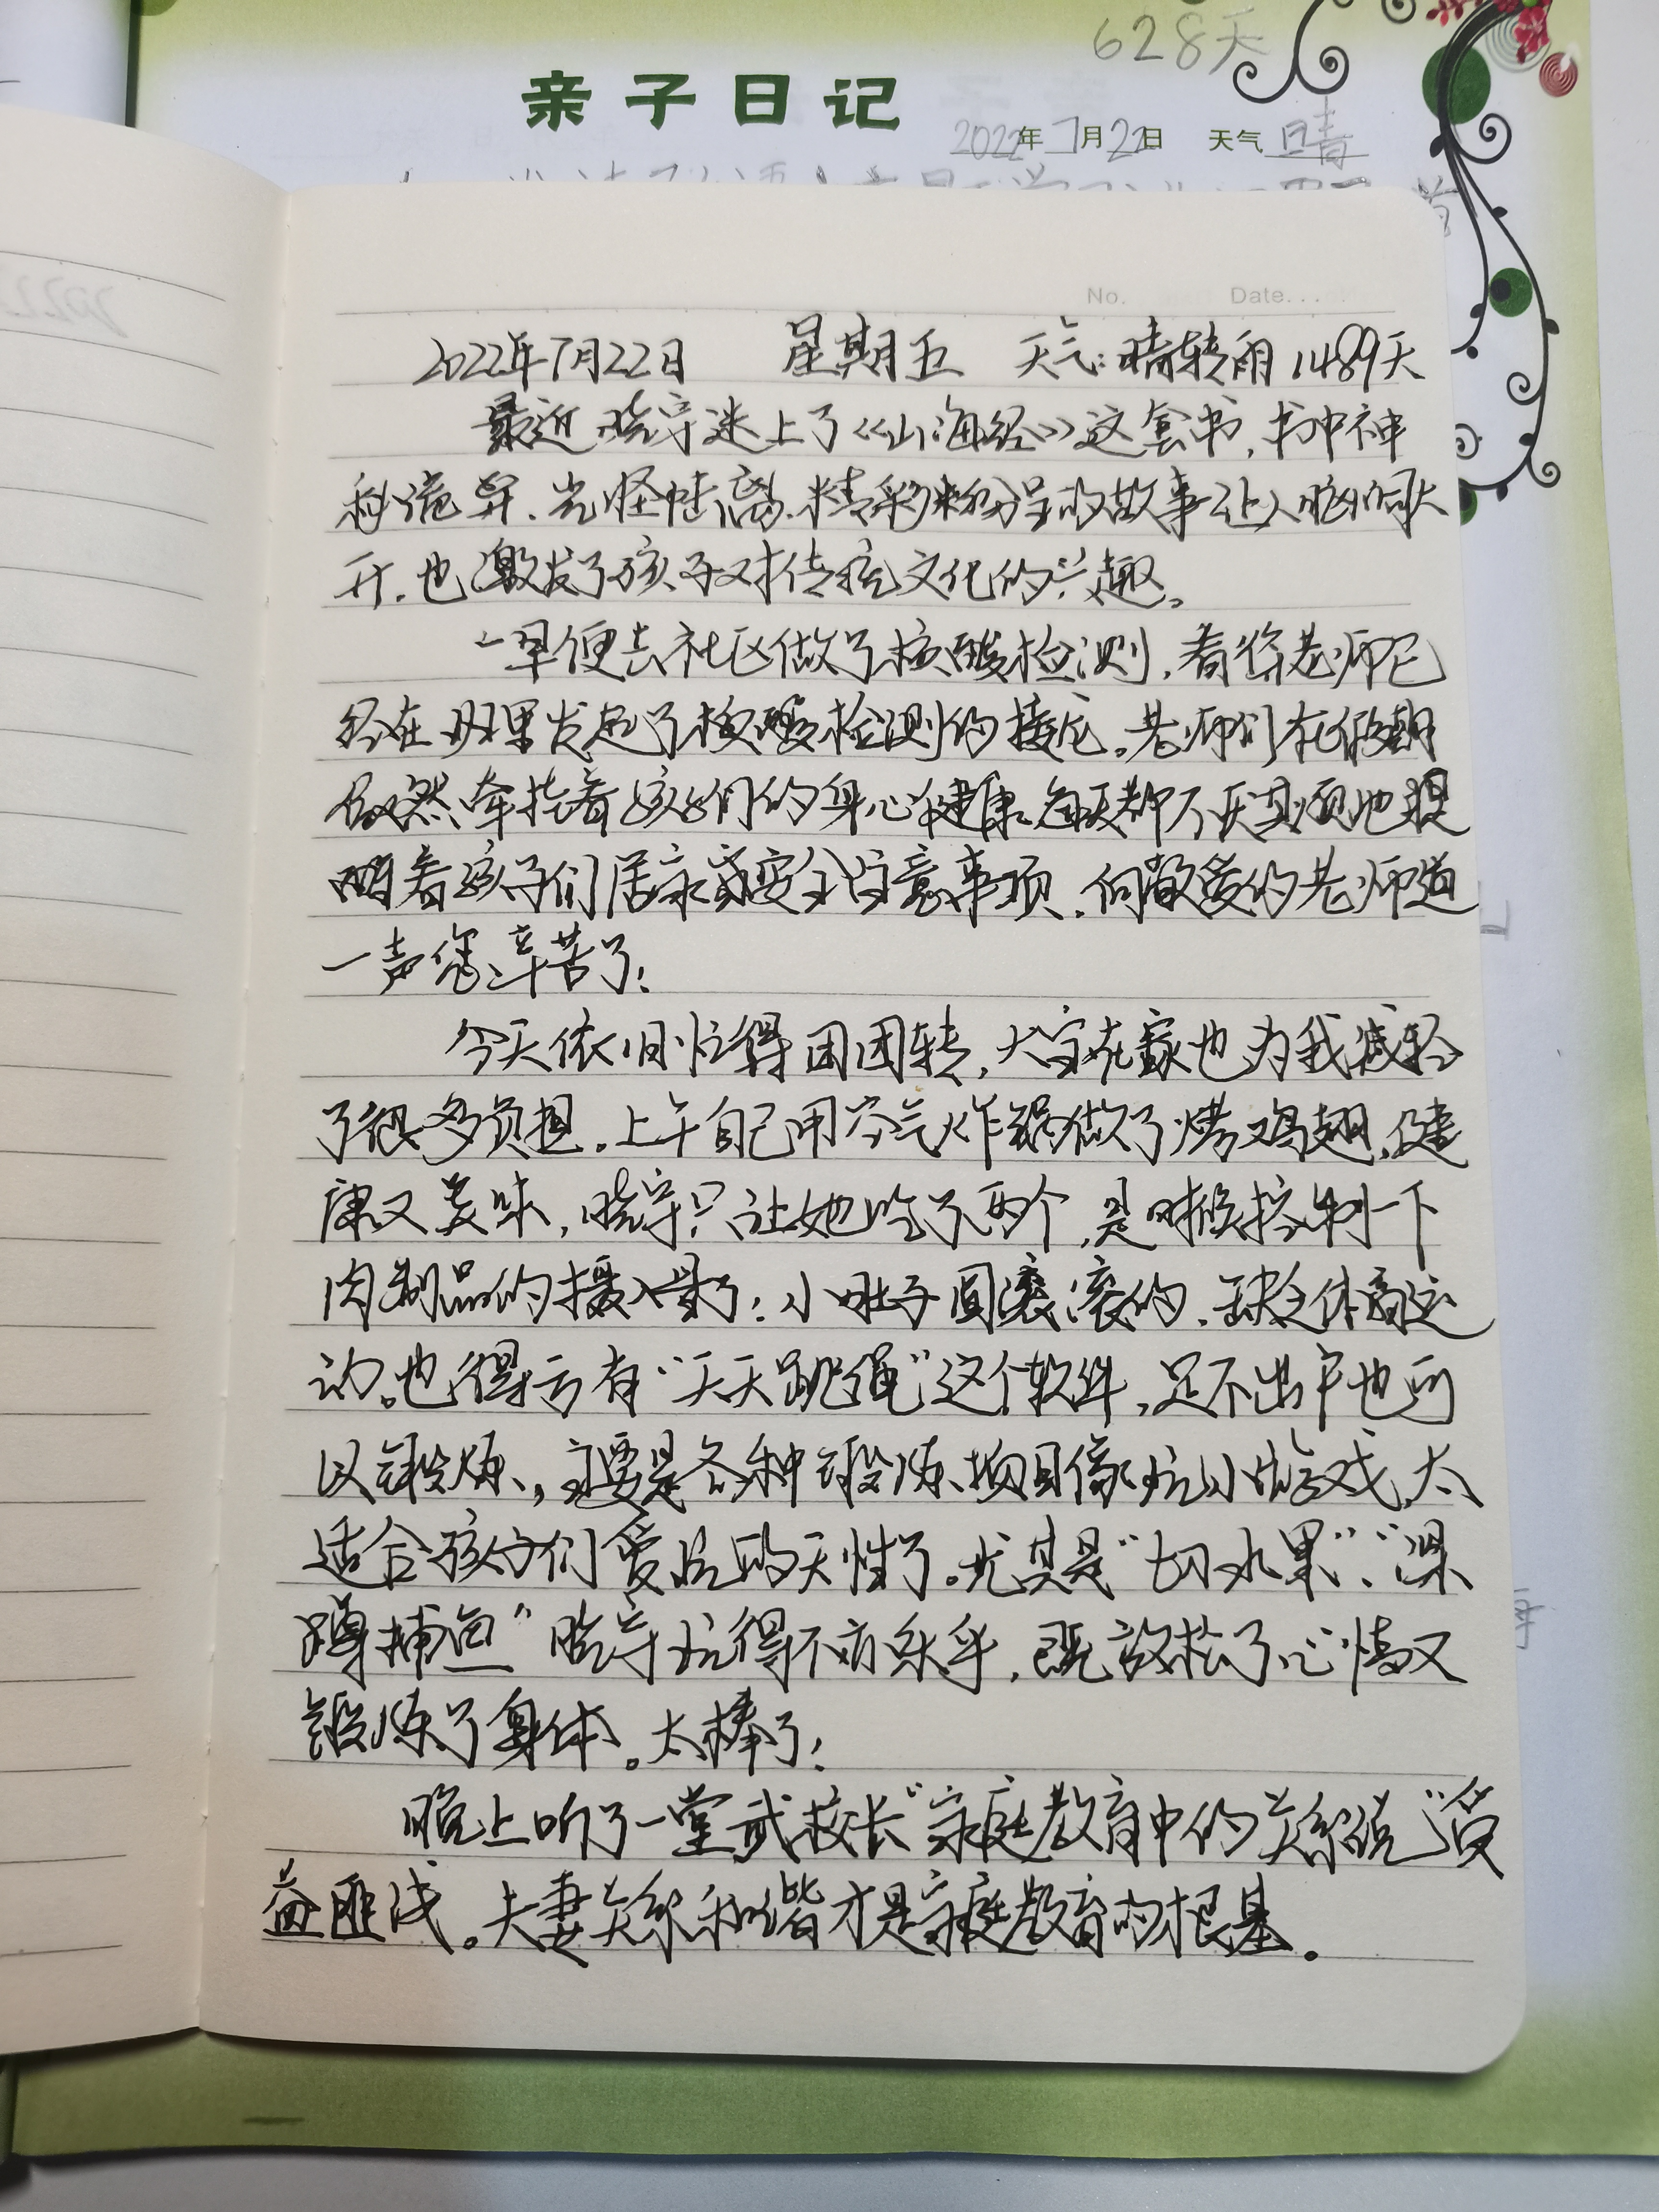 628天
亲子日记
2022年7月22日 天气 晴
No. Date...
2022年7月22日 星期五 天气:晴转雨 1489天
最近晓宇迷上了《山海经》这套书,书中神
秘诡异、光怪陆离、精彩纷呈的故事让人脑洞大
开,也激发了孩子对传统文化的兴趣。
一早便去社区做了核酸检测,看徐老师已
经在班里发起了核酸检测的接龙。老师们在假期
仍然牵挂着孩子们的身心健康,每天都不厌其烦地提
醒着孩子们居家安全注意事项,向敬爱的老师道
一声您辛苦了!
今天依旧忙得团团转,大宝在家也为我减轻
了很多负担。上午自己用空气炸锅做了烤鸡翅,健
康又美味,晓宇只让她吃了两个,是时候控制一下
肉制品的摄入量了!小肚子圆滚滚的,缺乏体育运
动。也得亏有“天天跳绳”这个软件,足不出户也可
以锻炼,主要是各种锻炼项目像玩小游戏,太
适合孩子们爱玩的天性了。尤其是“切水果”、“深
蹲捕鱼”晓宇玩得不亦乐乎,既放松了心情又
锻炼了身体。太棒了!
晚上听了一堂武校长“家庭教育中的关系说”受
益匪浅。夫妻关系和谐才是家庭教育的根基。